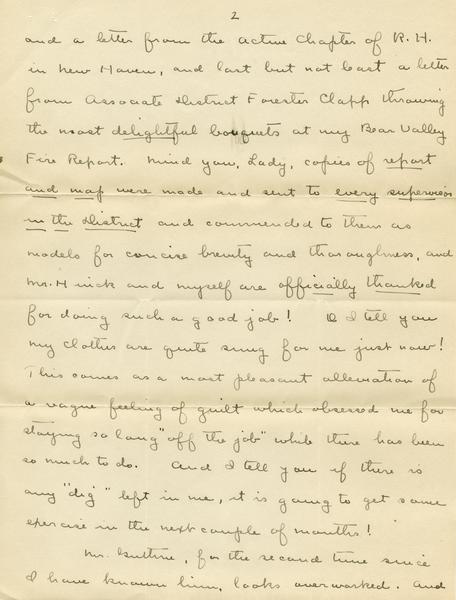 2
and a letter from the active Chapter of R. H.
in New Haven, and last but not least a letter
from Associate District Forester Clapp throwing
the most delightful bouquets at my Bear Valley
Fire Report. Mind you, Lady, copies of report
and map were made and sent to every supervisor
in the District and commended to them as
models for concise brevity and thoroughness, and
Mr. Hinck and myself are officially thanked
for doing such a good job! O I tell you
my clothes are quite snug for me just now!
This comes as a most pleasant alleviation of
a vague feeling of guilt which obsessed me for
staying so long "off the job" while there has been
so much to do. And I tell you if there is
any "dig" left in me, it is going to get some
exercise in the next couple of months!
Mr. Guthrie, for the second time since
I have known him, looks overworked. And